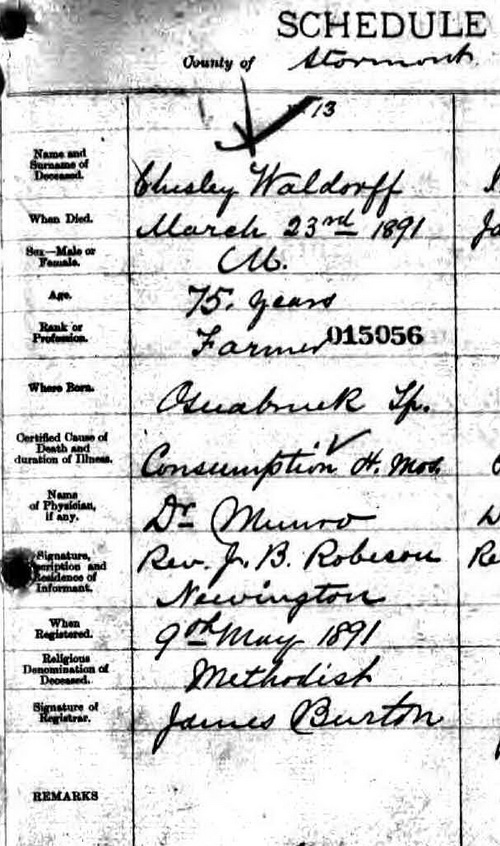 SCHEDULE
County of Stormont
13
Name and Surname of Deceased. Chesley Waldorff
When Died. March 23rd 1891
Sex—Male or Female. M.
Age. 75. years
Rank or Profession. Farmer 015056
Where Born. Osnabruck Tp.
Certified Cause of Death and duration of Illness. Consumption 4. Mos.
Name of Physician, if any. Dr Munro
Signature, Description and Residence of Informant. Rev. J. B. Robeson
Newington
When Registered. 9th May 1891
Religious Denomination of Deceased. Methodist
Signature of Registrar. James Burton
REMARKS